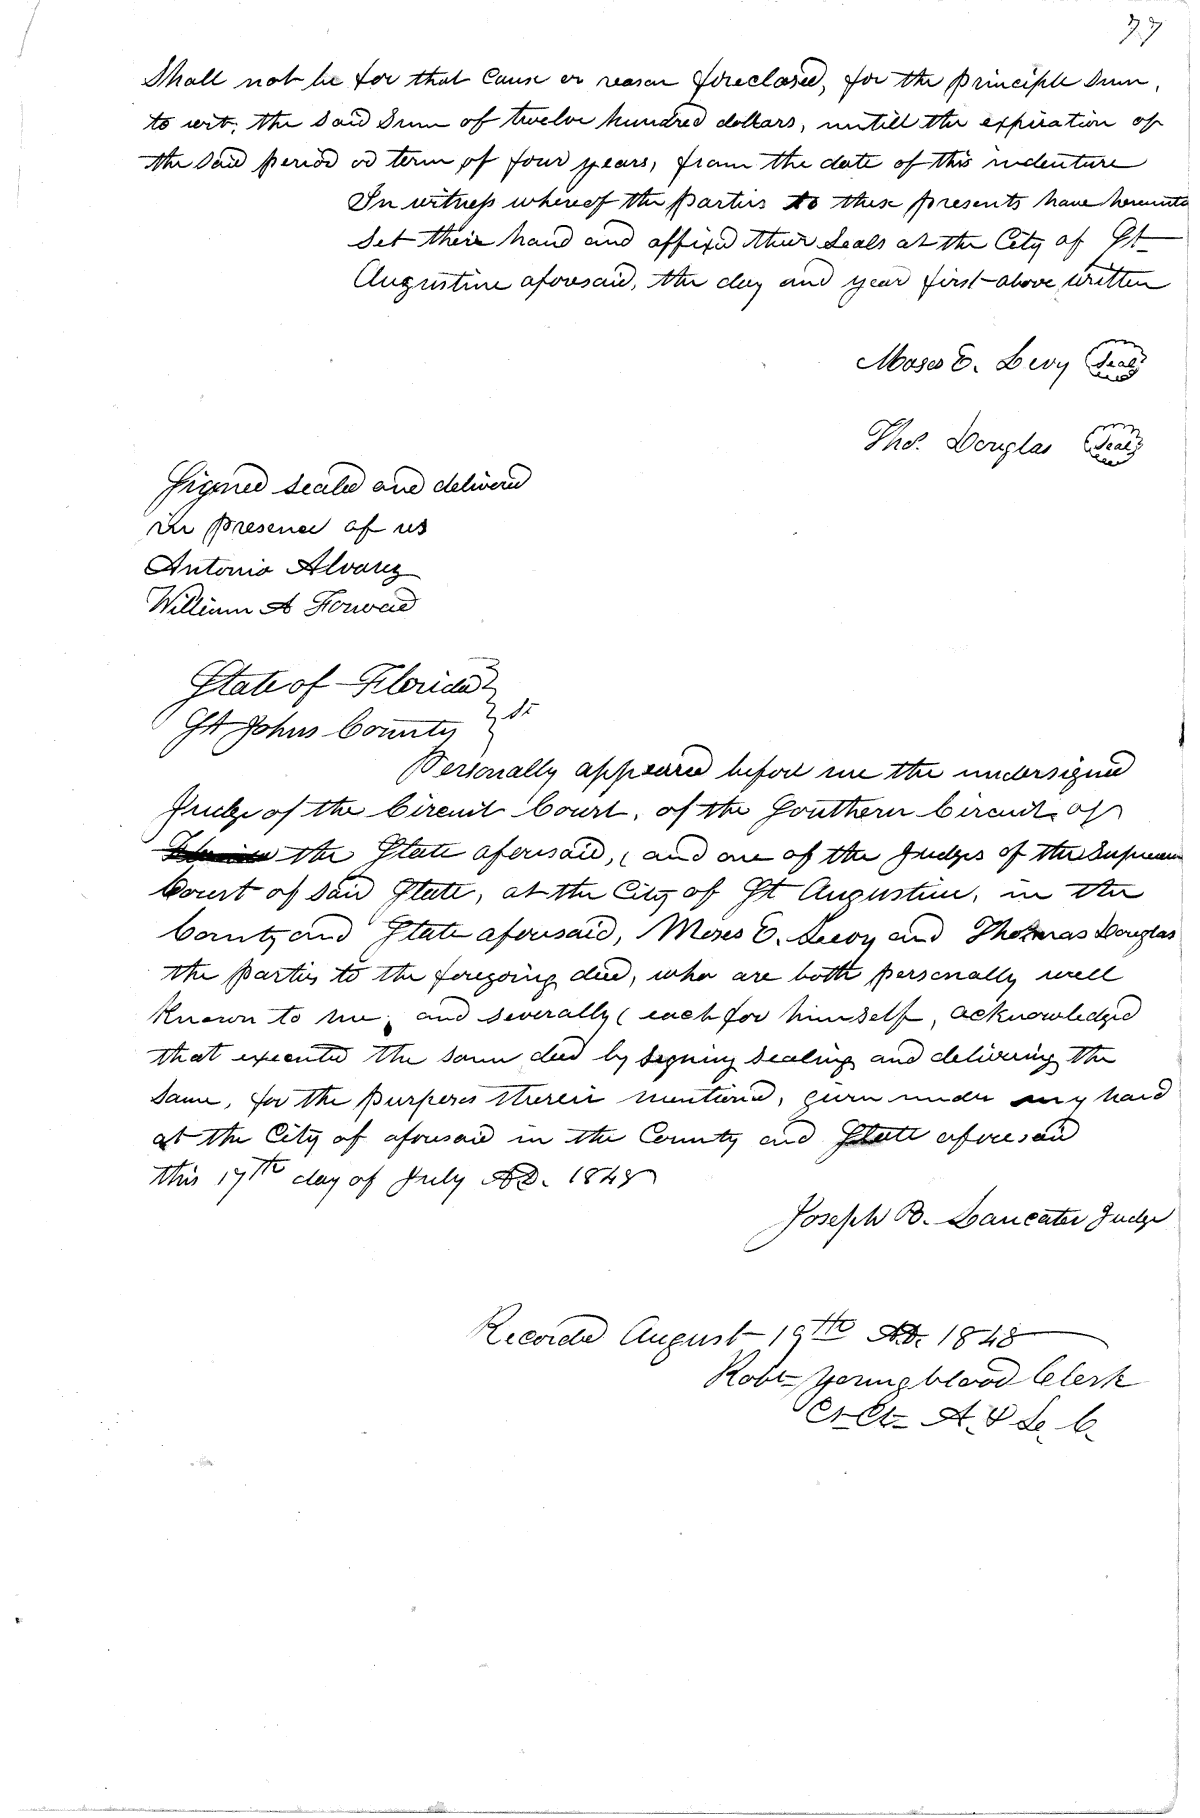 77
Shall not be for that cause or reason foreclosed, for the principle Sum,
to wit; the Said Sum of twelve hundred dollars, untill the expiration of
the Said period or term of four years, from the date of this indenture
In witness whereof the parties to these presents have hereunto
Set their hand and affixed their Seals at the City of St
Augustine aforesaid, the day and year first above written
Moses E. Levy Seal
Thos. Douglas Seal
Signed sealed and delivered
in presence of us
Antonio Alvarez
William A Forward
State of Florida
St Johns County
Personally appeared before me the undersigned
Judge of the Circuit Court, of the Southern Circuit, of
the State aforesaid, (and one of the Judges of the Supreme
Court of Said State, at the City of St Augustine, in the
County and State aforesaid, Moses E. Levy and Thomas Douglas
the parties to the foregoing deed, who are both personally well
Known to me; and severally (each for himself, acknowledged
that executed the same deed by signing sealing and delivering the
same, for the purposes therein mentioned, given under my hand
at the City of aforesaid in the County and State aforesaid
this 17th day of July AD. 1848
Joseph B. Lancaster Judge
Recorded August 19th AD. 1848
Robt Youngblood Clerk
Ct Ct A. & Le. C.